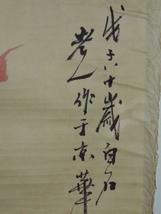 戊子六十歲白石
老人作于京華